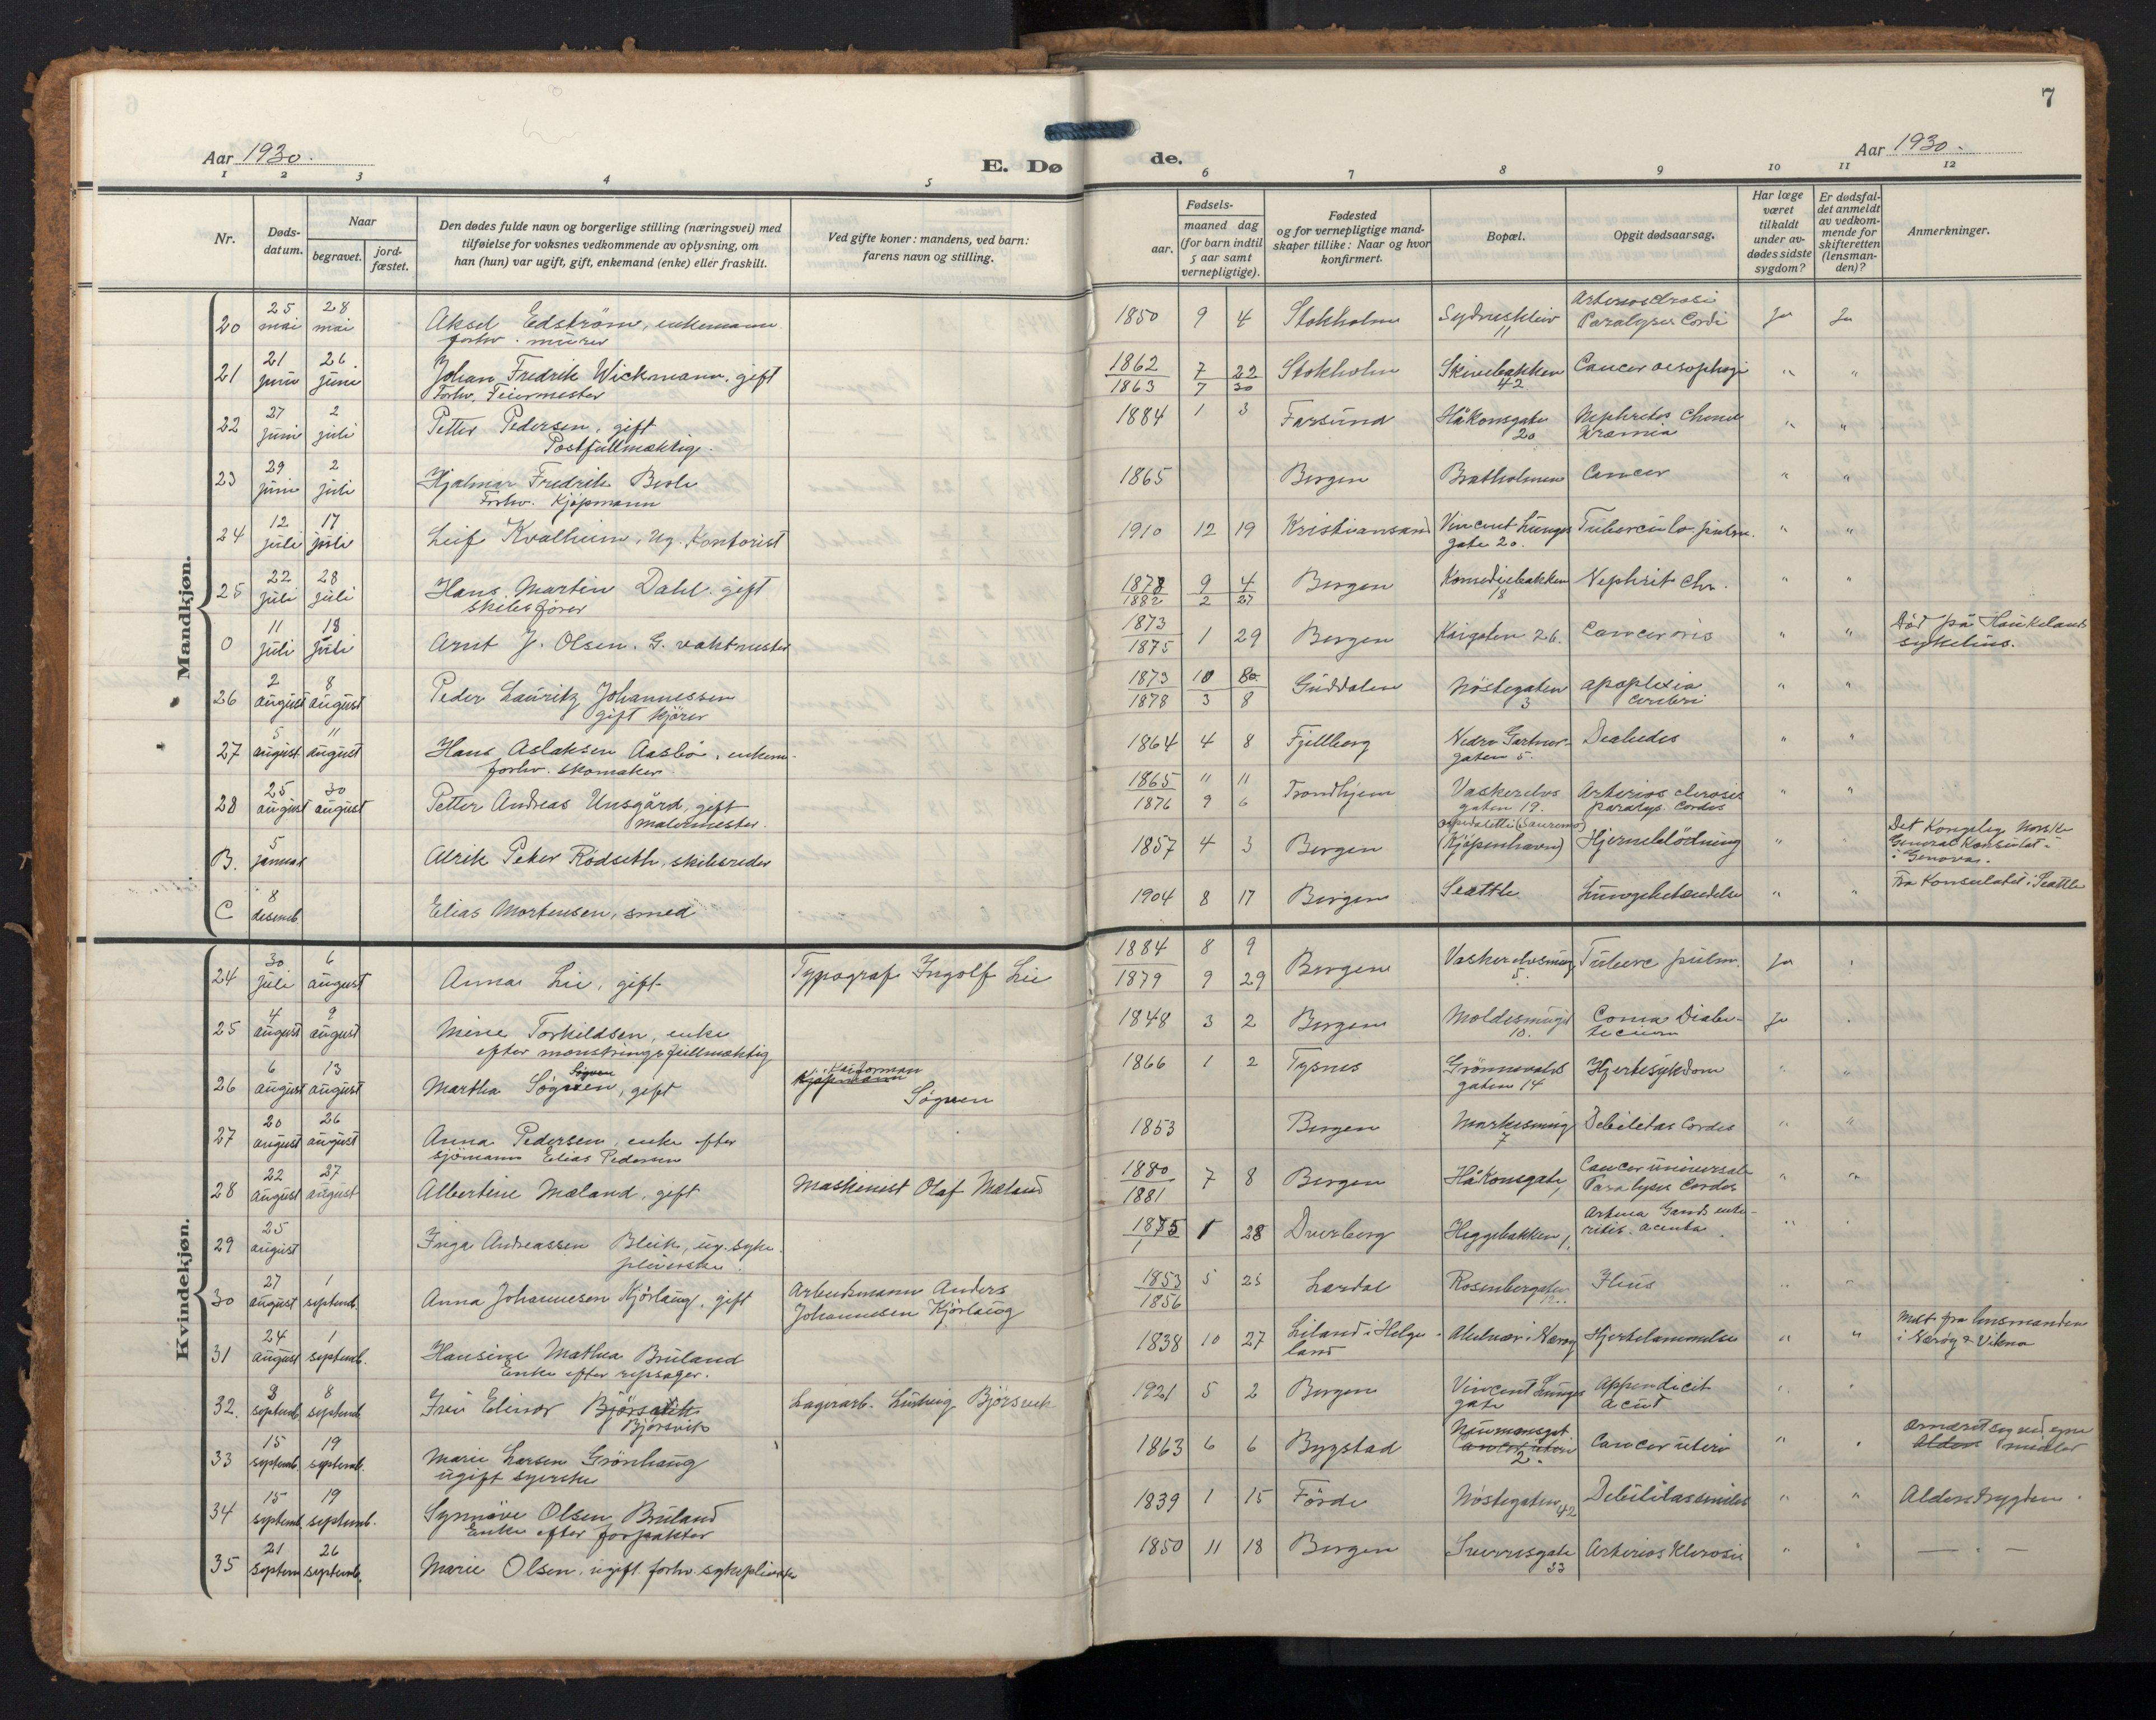 Aar 1930. E. Dø
de. Aar 1930. 7
1 2 3 4 5 6 7 8 9 10 11 12
Nr.
Døds-datum.
Naar
begravet.
jord-fæstet.
Den dødes fulde navn og borgerlige stilling (næringsvei) med
tilføielse for voksnes vedkommende av oplysning, om
han (hun) var ugift, gift, enkemand (enke) eller fraskilt.
Ved gifte koner: mandens, ved barn:
farens navn og stilling.
Fødsels-
aar.
maaned dag
(for barn indtil
5 aar samt
vernepligtige).
Fødested
og for vernepligtige mand-
skaper tillike: Naar og hvor
konfirmert.
Bopæl.
Opgit dødsaarsag.
Har læge
været
tilkaldt
under av-
dødes sidste
sygdom?
Er dødsfal-
det anmeldt
av vedkom-
mende for
skifteretten
(lensman-
den)?
Anmerkninger.
Mandkjøn.
20 25 mai 28 mai Aksel Edström, enkemann 1850 9 4 Stokholm Sydneskleiv Arteriosclrosi Ja Ja
forhv. murer 11 Paralyses Cordi
21 21 juni 26 juni Johan Fredrik Wickmann, gift 1862 7 22 Stokholm Skivebakken Cancer oesophagi " "
Forhv. Feiermester 1863 7 30 42
22 27 juni 2 juli Petter Pedersen, gift 1884 1 3 Farsund Håkonsgate Nephrites Chron " "
Postfullmæktig. 20 Uræmia
23 29 juni 2 juli Hjalmar Fredrik 1865 Bergen Bratholmen Cancer " "
Forhv. Kjøpmann
24 12 juli 17 juli Leif Kvalheim, ug. Kontorist 1910 12 19 Kristiansand Vincent Lunges Tuberculo. pulm. " "
gate 20.
25 22 juli 28 juli Hans Martin Dahl. gift 1878 9 4 Bergen Komediebakken Nephrit Chr. " "
skibsfører 1882 2 27 18
0 11 juli 18 juli Arnt J. Olsen. G. vaktmester 1873 1 29 Bergen Kaigaten 26. Cancer oris " " Død på Haukeland
1875 sykehus.
26 2 august 8 august Peder Lauritz Johannessen 1873 10 30 Guddalen Nöstegaten apoplexia " "
gift kjörer 1878 3 8 3 Cerebri
27 5 august 11 august Hans Aslaksen Aasbö, enkem. 1864 4 8 Fjellberg Nedre Gartner- Diabedes " "
forhv. skomaker gaten 5.
28 25 august 30 august Petter Andreas Unsgård, gift 1865 11 11 Trondhjem Vaskerelvs Arterios clerosis " "
malermester. 1876 9 6 gaten 19. paralys. Cordes
B. 5 januar Alrik Peter Rödseth, skibsreder 1857 4 3 Bergen (Kjöpenhavn) Hjerneblödning " " Det Kongelig Norske
General Konsulat
i Genova.
C 8 desemb. Elias Mortensen, smed 1904 8 17 Bergen Seattle Lungebetændelse " " Fra Konsulatet i Seattle
Kvindekjøn.
24 30 juli 6 august Anna Lie, gift Typograf Ingolf Lie 1884 8 9 Bergen Vaskerelvsmug Tuberc pulm. Ja "
1879 9 29 5.
25 4 august 9 august Mine Torkildsen, enke 1848 3 2 Bergen Moldesmuget Coma Diabe- Ja "
efter mønstringsfullmæktig 10. ticum
26 6 august 13 august Martha Søgnen, gift Kjøpmann Kaiforman 1866 1 2 Tysnes Grönnevolds Hjertesykdom " "
Søgnen gaten 14
27 20 august 26 august Anna Pedersen, enke efter 1853 Bergen Markesmug Debilitas Cordes " "
sjömann Elias Pedersen 7
28 22 august 27 august Albertine Mæland, gift Maskinist Olaf Mæland 1880 7 8 Bergen Håkonsgate Cancer universal " "
1881 1 Paralyses Cordes
29 25 august Inga Andreassen Bleik, ug. syke 1875 1 28 Dverberg Heggebakken 1. " "
pleierske. 1 acuta
30 27 august 1 septemb. Anna Johannesen Kjörlaug, gift Arbeidsmann Anders 1853 5 25 Lærdal Rosenbergaten Ileus " "
Johannesen Kjörlaug 1856 12.
31 24 august 1 septemb. Hansine Mathea Bruland 1838 10 27 Liland i Helge- i Nærøy Hjertelammelse " " Melt fra lensmanden
Enke efter repsager. land i Nærøy & Vikna
32. 3 septemb. 8 septemb. Frei Elinor Björsvik Lagerarb. Ludvig Björsvik 1921 5 2 Bergen Vincent Lunges Appendicit " "
Björsvik gate acut
33 15 septemb. 19 septemb. Marie Larsen Grönhaug 1863 6 6 Bygstad Neumansgt. Cancer uteri " "
ugift syerske Cancer uteri 2.
34 15 septemb. 19 septemb. Synnöve Olsen Bruland 1839 1 15 Förde Nöstegaten 42 Debilitas seniles " " Alderstrygden.
Enke efter forpakter
35 21 septem 26 septemb. Marie Olsen, ugift. forhv. sykepleierske 1850 11 18 Bergen Sverresgate Arterios Klerosis " " — " —
33